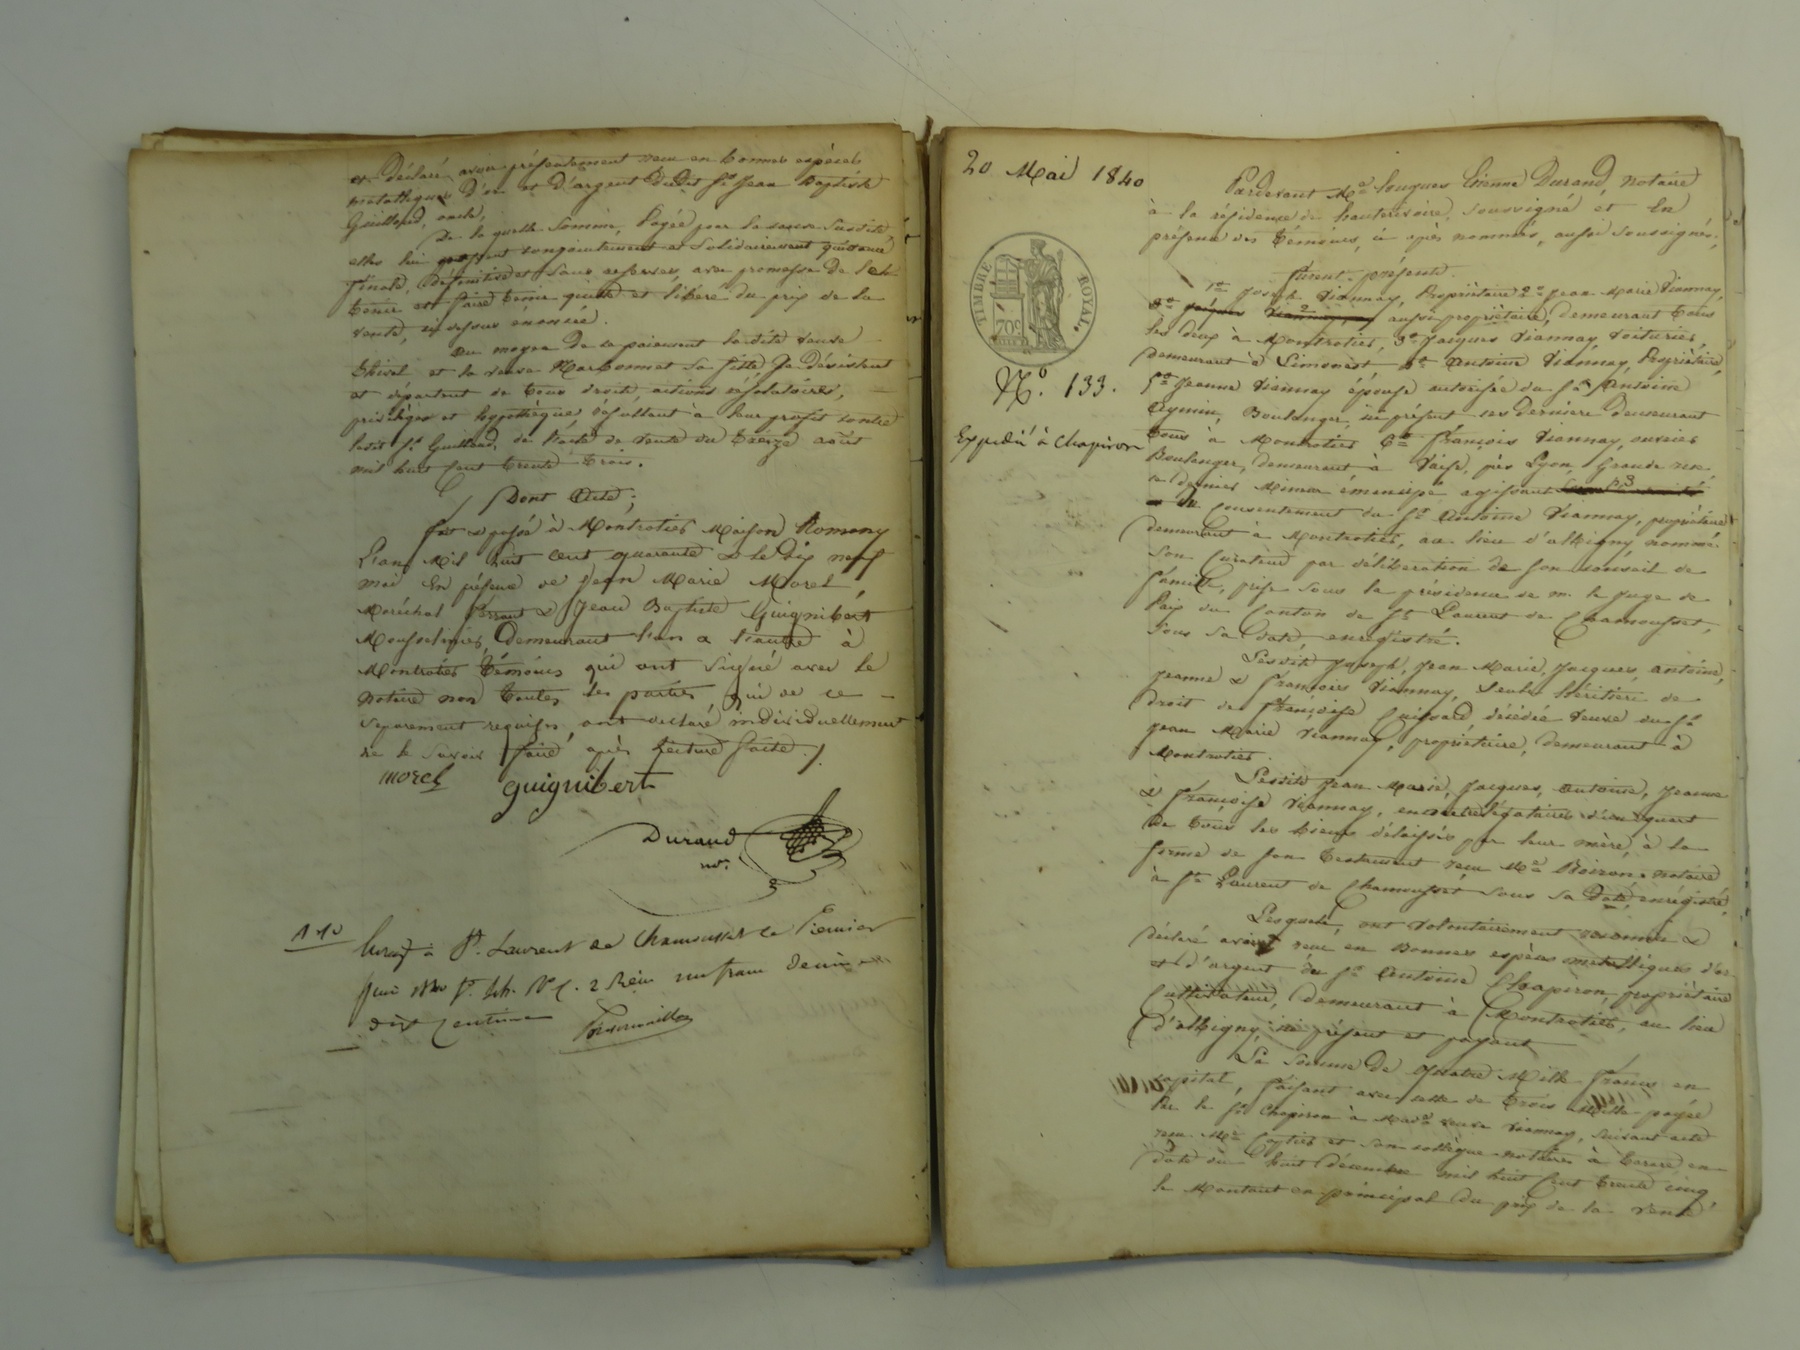 et Déclaré avoir présentement recu en bonnes espèces
métalliques D'or et D'argent Dudit Sr Jean Baptiste
Guilloud, oncle,
De la quelle Somme, Payée pour la cause Susdite,
elles lui passent conjointement et Solidairement quittance
finale, Définitive et Sans réserves, avec promesse De l'en
tenir et faire tenir quitte et libéré du prix de la
vente, ci dessus énoncée.
Au moyen de ce paiement la dite veuve
et la veuve Narbonnet Sa fille, Se désistent
et départent de tous droits, actions résolutoires,
privilèges et hypothèque, résultant à leur profit contre
ledit Sr Guilloud, de l'acte de vente du treize août
mil huit cent trente trois.
Dont Acte;
fait & passé à Montrotier Maison Romany
L'an Mil huit cent quarante & le dix neuf
mai En présence de Jean Marie Morel
Maréchal ferrant & Jean Baptiste Guignibert
Mousselinier, Demeurant l'un & l'autre à
Montrotier témoins qui ont signé avec le
notaire non toutes les parties qui de ce
séparément requises, ont déclaré individuellement
ne le savoir faire après lecture faite.
morel guignibert
Durand
nore
Enreg à St Laurent de Chamousset le Premier
Juin 1840 fo. Reçu un franc
dix centimes
20 Mai 1840
TIMBRE ROYAL
70c
No. 133.
Expédié à Chapiron
Pardevant Me Hugues Etienne Durand, notaire
à la résidence de hauterivoire, soussigné et En
présence des témoins, ci après nommés, aussi soussignés;
furent présents.
1o Joseph Viannay, Propriétaire 2o Jean Marie Viannay,
aussi propriétaire, demeurant tous
les deux à Montrotier, 3o Jacques Viannay, voiturier,
demeurant à Limonest 4o Antoine Viannay, Propriétaire
5o Jeanne Viannay épouse autorisée du Sr Antoine
Boulanger, ici présent ces derniers demeurant
tous à Montrotier 6o françois Viannay, ouvrier
Boulanger, demeurant à Vaise, près Lyon, Grande rue
ce dernier Mineur émancipé agissant
du consentement du Sr Antoine Viannay, propriétaire
demeurant à Montrotier, au lieu d'albigny nommé
Son Curateur par délibération de Son conseil de
famille, prise sous la présidence de m. le Juge de
Paix du Canton de St Laurent de Chamousset,
Sous Sa date enregistré.
Lesdits Joseph, Jean Marie, Jacques, antoine,
Jeanne & françois Viannay, Seuls héritiers de
Droit de françoise Guissard, décédée veuve du Sr
Jean Marie Viannay, propriétaire, demeurant à
Montrotier.
Lesdits Jean Marie, Jacques, antoine, Jeanne
& françois Viannay, en outre légataires d'un quart
De tous les biens délaissés par leur mère, à la
forme de Son testament recu Me Boiron notaire
à St Laurent de Chamousset Sous Sa Date, enregistré,
Lesquels, ont volontairement reconnu &
déclaré avoir recu en Bonnes espèces métalliques d'or
et d'argent du Sr Antoine Chapiron propriétaire
Cultivateur, Demeurant à Montrotier, au lieu
d'albigny, ici présent et payant
La Somme De quatre Mille francs en
capital, faisant avec celle de trois Mille payée
Par le Sr Chapiron à Made veuve Viannay, Suivant acte
recu Me et son collègue notaires à tarare en
Date du huit décembre mil huit cent trente cinq
le Montant en principal du prix de la vente